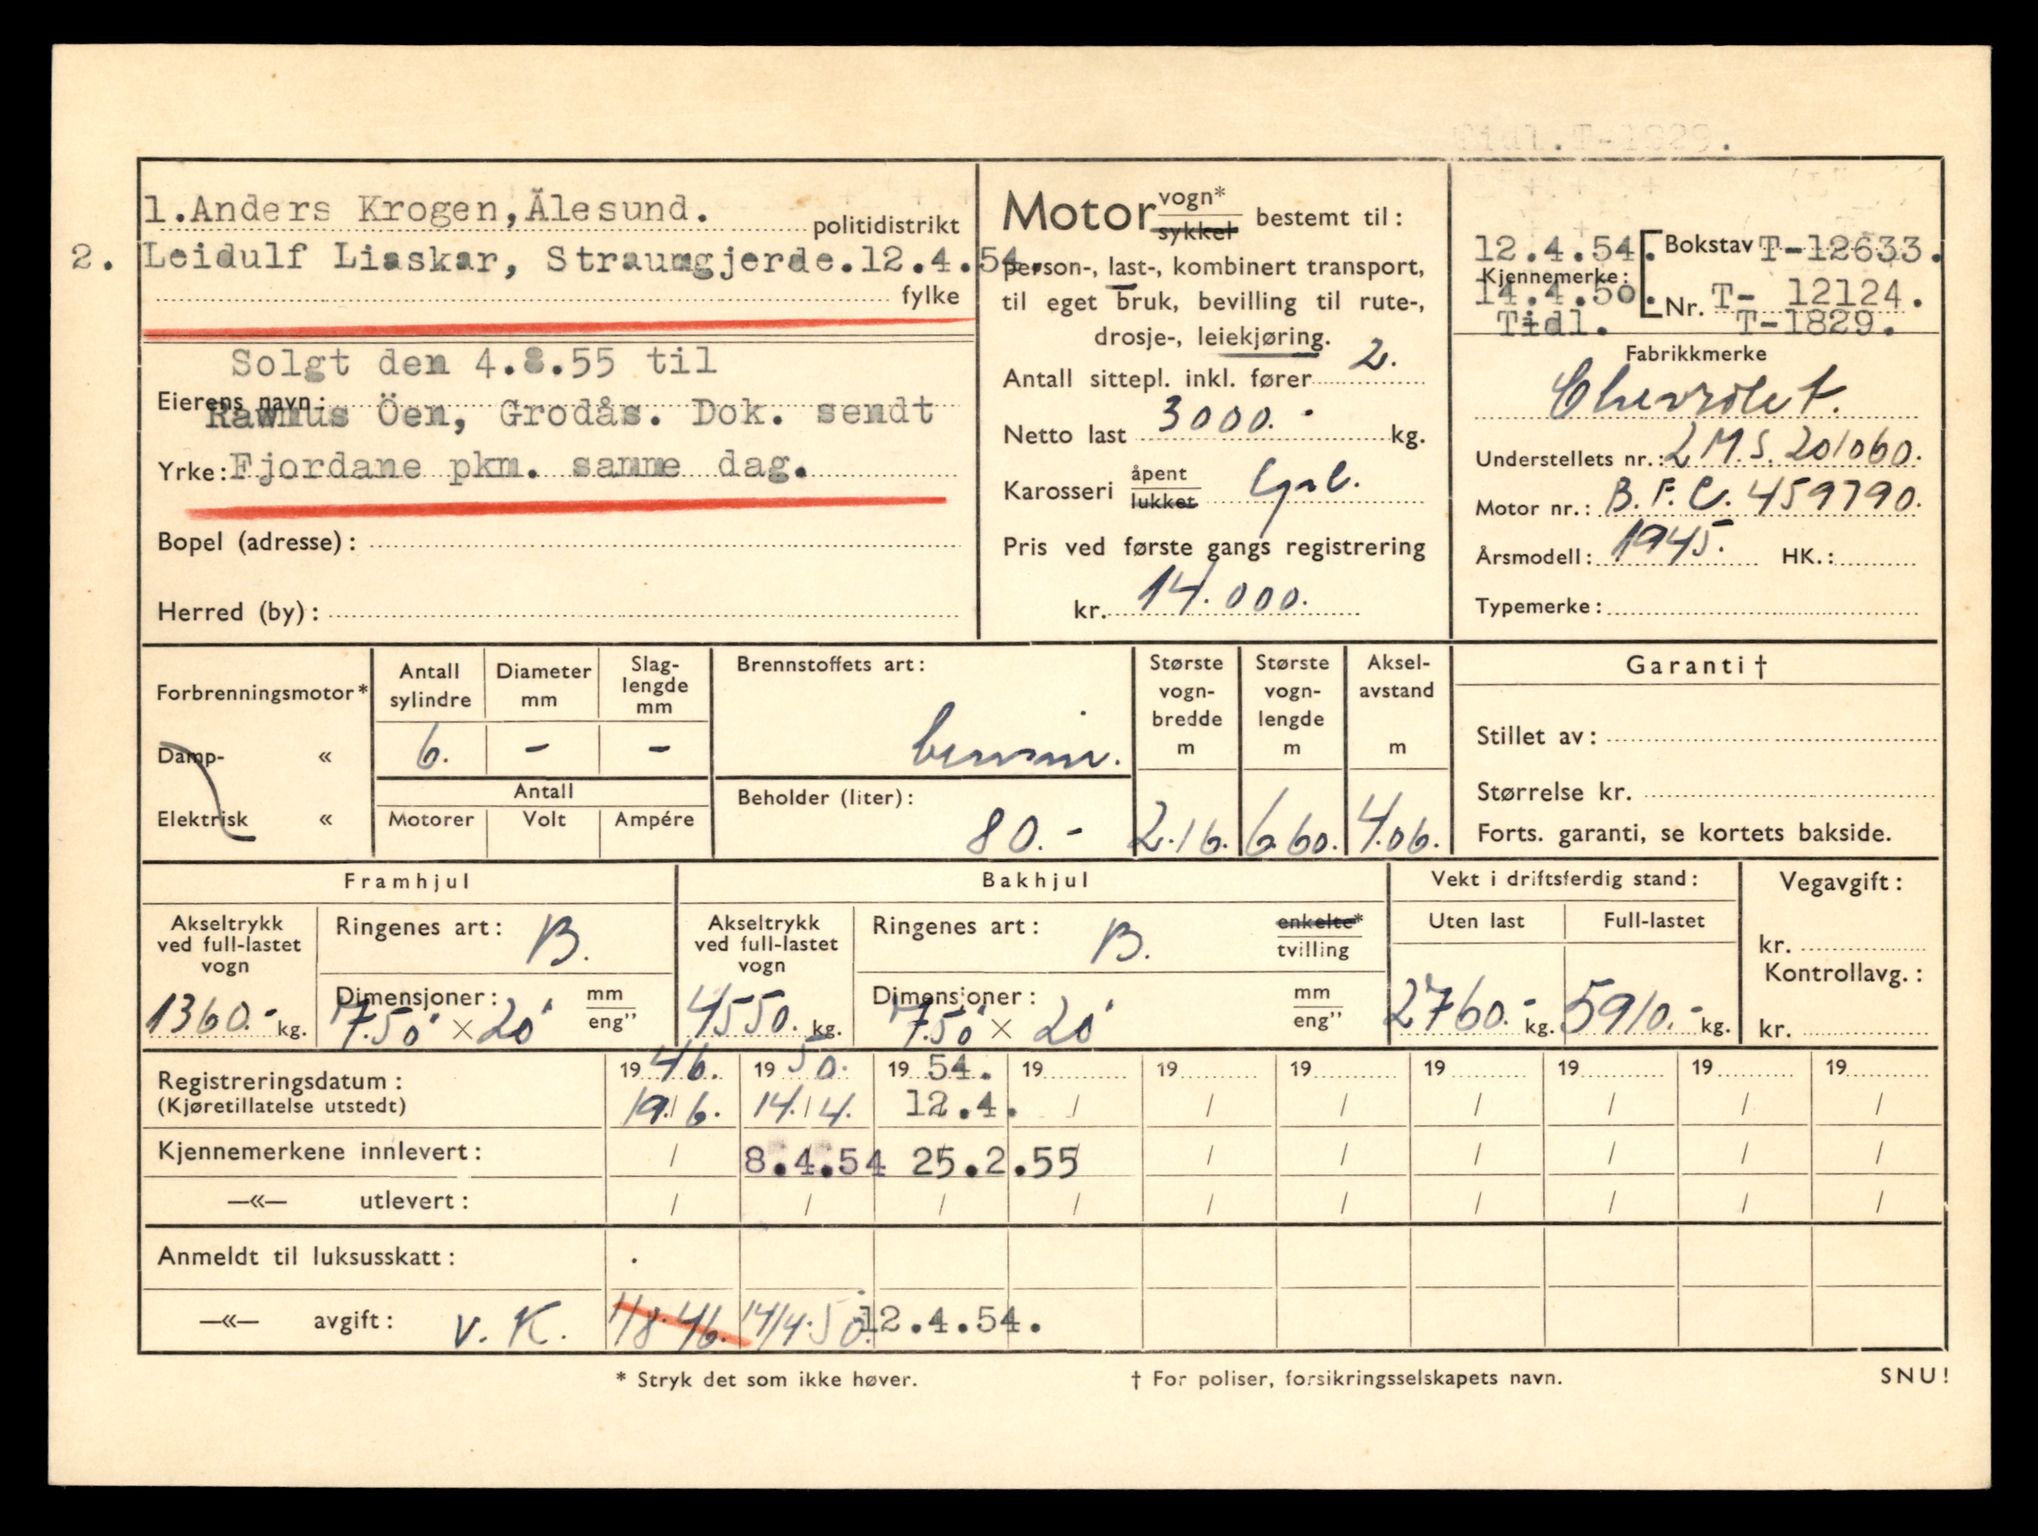 1.Anders Krogen,Ålesund.
politidistrikt
2. Leidulf Liaskar, Straumgjerde.12.4.54.
fylke
Solgt den 4.8.55 til
Eierens navn:
Rasmus Öen, Grodås. Dok. sendt
Yrke: Fjordane pkm. samme dag.
Bopel (adresse):
Herred (by):
Motor vogn* sykkel bestemt til:
person-, last-, kombinert transport,
til eget bruk, bevilling til rute-,
drosje-, leiekjøring.
Antall sittepl. inkl. fører 2.
Netto last 3000.- kg.
Karosseri åpent lukket
Pris ved første gangs registrering
kr. 14.000.
T-1829.
12.4.54. Bokstav T-12633.
Kjennemerke:
14.4.50. Nr. T- 12124.
Tidl. T-1829.
Fabrikkmerke
Chevrolet.
Understellets nr.: 2 M.S. 201060.
Motor nr.: B.F.C. 459790.
Årsmodell: 1945. HK.:
Typemerke:
Forbrenningsmotor*
Damp- «
Elektrisk «
Antall sylindre
Diameter mm
Slag-lengde mm
6. - -
Antall
Motorer Volt Ampére
Brennstoffets art:
bensin.
Beholder (liter):
80.-
Største vogn-bredde m
2.16.
Største vogn-lengde m
6.60.
Aksel-avstand m
4.06.
Garanti †
Stillet av:
Størrelse kr.
Forts. garanti, se kortets bakside.
Framhjul
Akseltrykk ved full-lastet vogn
1360.- kg.
Ringenes art: B.
Dimensjoner: mm eng"
7.50 × 20
Bakhjul
Akseltrykk ved full-lastet vogn
4550. kg.
Ringenes art: B. enkelte* tvilling
Dimensjoner: mm eng"
7.50 × 20
Vekt i driftsferdig stand:
Uten last Full-lastet
2760.- kg. 5910.- kg.
Vegavgift:
kr.
Kontrollavg.:
kr.
Registreringsdatum: 19 46. 19 50. 19 54. 19 19 19 19 19 19 19
(Kjøretillatelse utstedt) 19./6. 14./4. 12.4. / / / / / / /
Kjennemerkene innlevert: / 8.4.54 25.2.55 / / / / / /
—«— utlevert: / / / / / / / / / /
Anmeldt til luksusskatt:
—«— avgift: V. K. 1/8.46. 14/4.50. 12.4.54.
* Stryk det som ikke høver.
† For poliser, forsikringsselskapets navn.
SNU!